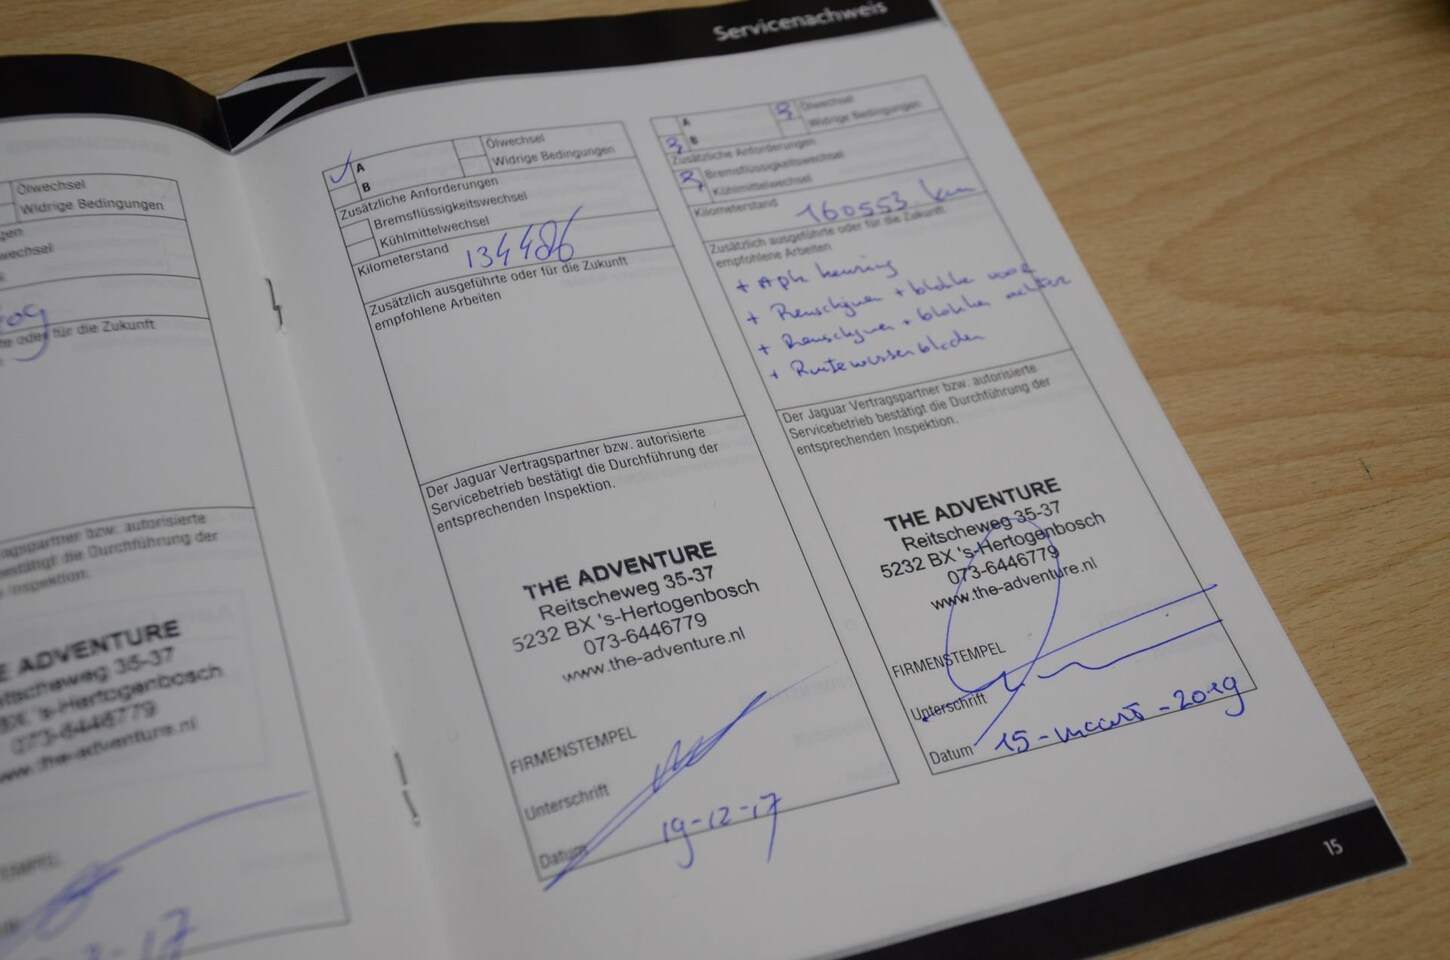 Servicenachweis
Ölwechsel
Widrige Bedingungen
für die Zukunft
autorisierte
Durchführung der
Inspektion.
ADVENTURE
35-37
's-Hertogenbosch
073-6446779
www.the-adventure.nl
A
B
Ölwechsel
Widrige Bedingungen
Zusätzliche Anforderungen
Bremsflüssigkeitswechsel
Kühlmittelwechsel
Kilometerstand 134486
Zusätzlich ausgeführte oder für die Zukunft
empfohlene Arbeiten
Der Jaguar Vertragspartner bzw. autorisierte
Servicebetrieb bestätigt die Durchführung der
entsprechenden Inspektion.
THE ADVENTURE
Reitscheweg 35-37
5232 BX 's-Hertogenbosch
073-6446779
www.the-adventure.nl
FIRMENSTEMPEL
Unterschrift
Datum 19-12-17
A
B
Ölwechsel
Widrige Bedingungen
Zusätzliche Anforderungen
Bremsflüssigkeitswechsel
Kühlmittelwechsel
Kilometerstand 160553 km
Zusätzlich ausgeführte oder für die Zukunft
empfohlene Arbeiten
+ Apk keuring
+ Remschijven + blokken voor
+ Remschijven + blokken achter
+ Ruitewisserbladen
Der Jaguar Vertragspartner bzw. autorisierte
Servicebetrieb bestätigt die Durchführung der
entsprechenden Inspektion.
THE ADVENTURE
Reitscheweg 35-37
5232 BX 's-Hertogenbosch
073-6446779
www.the-adventure.nl
FIRMENSTEMPEL
Unterschrift
Datum 15-maart-2019
15